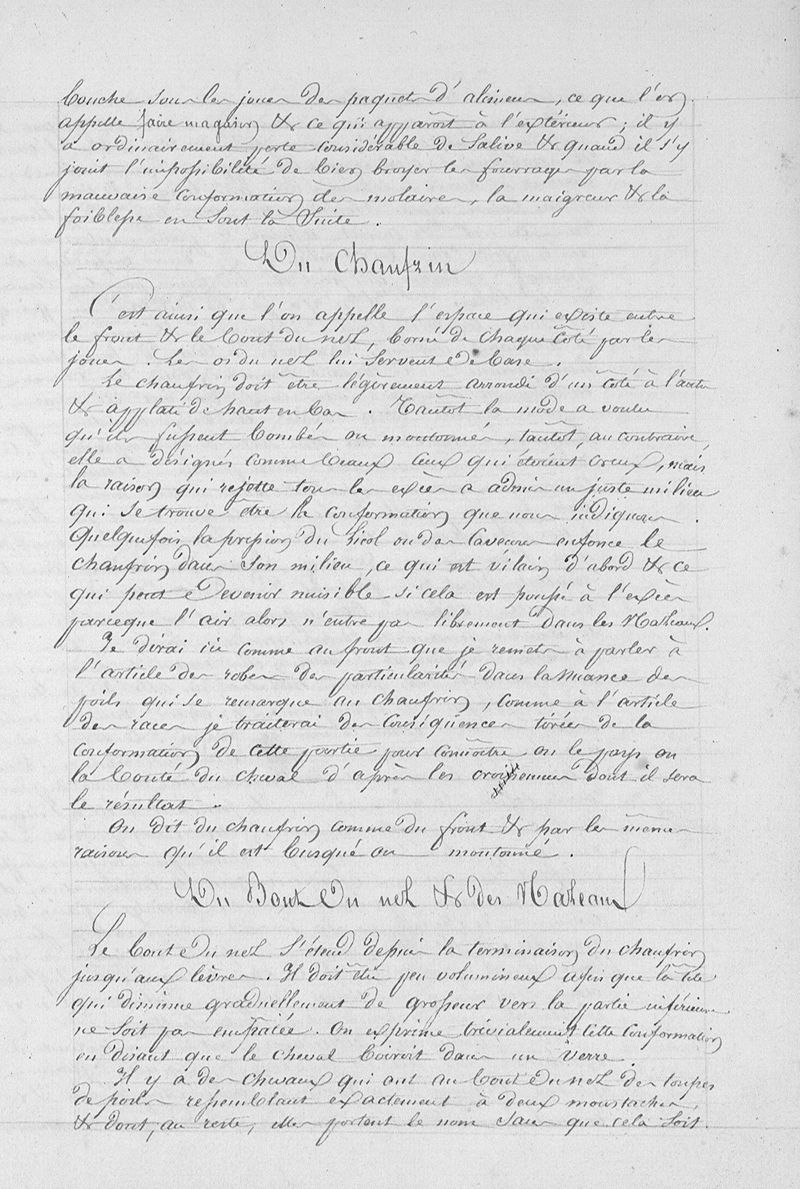 bouche sous les joues des paquets d'alimens, ce que l'on
appelle faire magasin & ce qui apparoit à l'extérieur; il y
a ordinairement perte considérable de Salive & quand il s'y
joint l'impossibilité de bien broyer les fourrages par la
mauvaise conformation des molaires, la maigreur & la
foiblesse en sont la Suite.
Du Chanfrin
C'est ainsi que l'on appelle l'espace qui existe entre
le front & le bout du nez, borné de chaque côté par les
joues. Les os du nez lui Servent de base.
Le chanfrin doit être légèrement arrondi d'un côté à l'autre
& applati de haut en bas. Tantôt la mode a voulu
qu'ils fussent bombés ou moutonnés, tantôt, au contraire,
elle a désignés comme beaux ceux qui étoient creux, mais
la raison qui rejette tous les excès a admis un juste milieu
qui se trouve être la conformation que nous indiquons.
Quelquefois la pression du licol ou des caveçons enfonce le
chanfrin dans Son milieu, ce qui est vilain d'abord & ce
qui peut devenir nuisible si cela est poussé à l'excès
parceque l'air alors n'entre pas librement dans les Nazeaux.
Je dirai ici comme au front que je remets à parler à
l'article des robes des particularités dans la nuance des
poils qui se remarque au chanfrin, comme à l'article
des races je traiterai des conséquences tirées de la
conformation de cette partie pour connoître ou le pays ou
la bonté du cheval d'après les croisemens dont il sera
le résultat.
On dit du chanfrin comme du front & par les mêmes
raisons qu'il est busqué ou moutonné.
Du Bout du nez & des Nazeaux
Le bout du nez s'étend depuis la terminaison du chanfrin
jusqu'aux lèvres. Il doit être peu volumineux afin que la tête
qui diminue graduellement de grosseur vers la partie inférieure
ne Soit pas empâtée. On exprime trévialement cette conformation
en disant que le cheval boiroit dans un verre.
Il y a des chevaux qui ont au bout du nez des toupes
de poils ressemblant exactement à deux moustaches,
& dont, au reste, elles portent le nom Sans que cela Soit